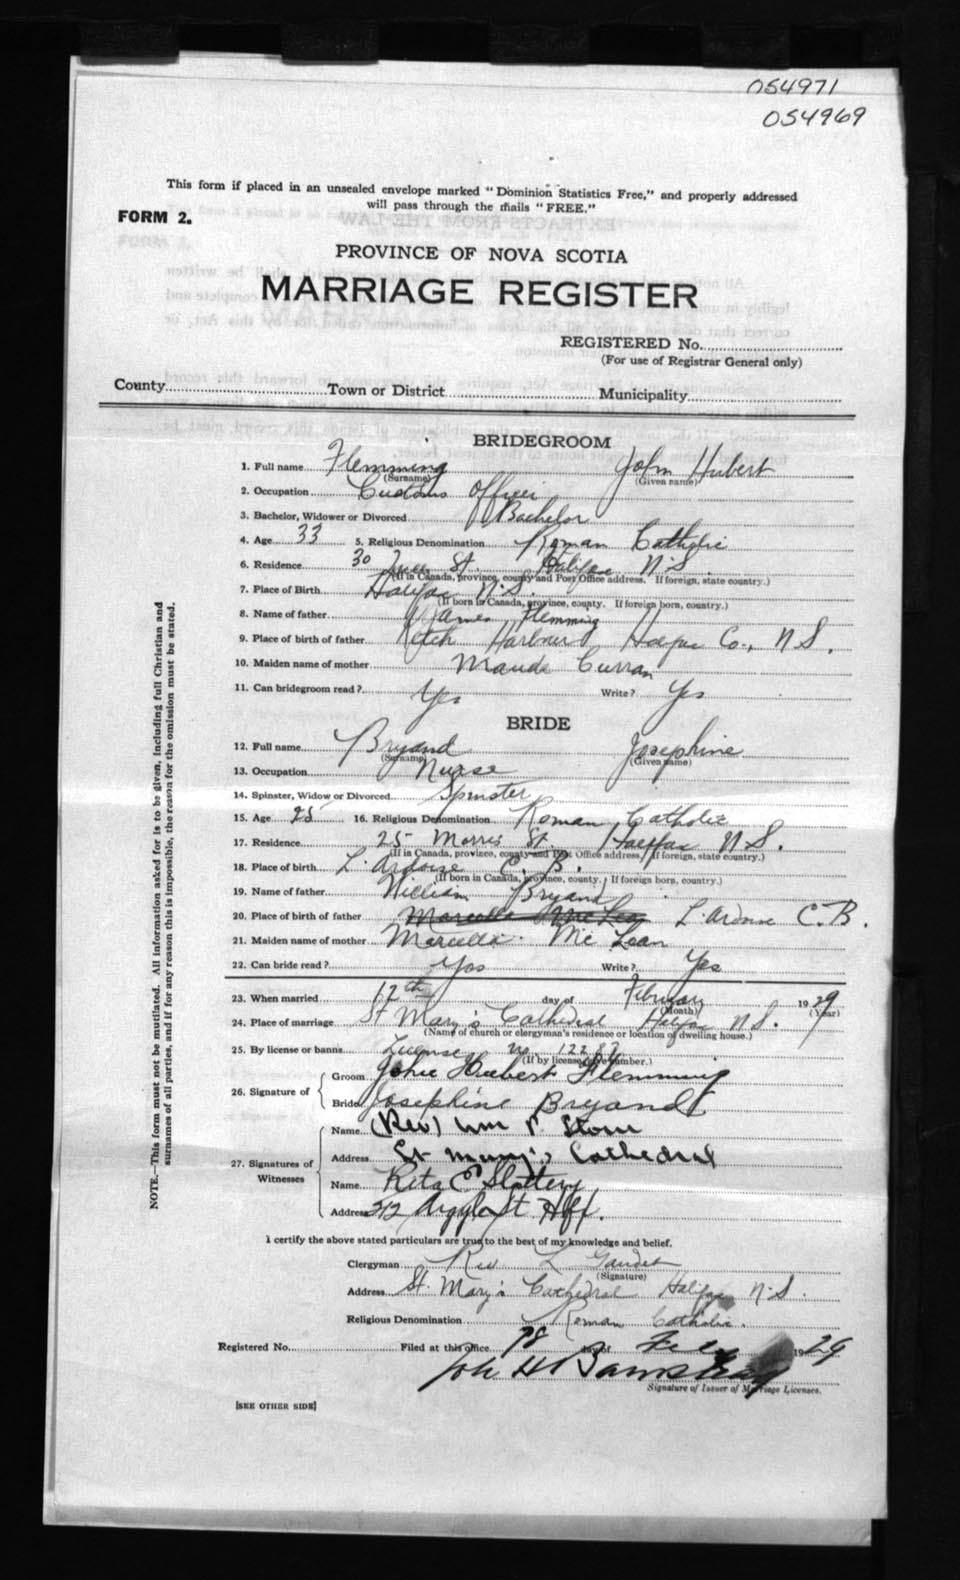 054971
054969
This form if placed in an unsealed envelope marked "Dominion Statistics Free," and properly addressed
will pass through the mails "FREE."
FORM 2.
PROVINCE OF NOVA SCOTIA
MARRIAGE REGISTER
REGISTERED No.
(For use of Registrar General only)
County Town or District Municipality
BRIDEGROOM
1. Full name Flemming John Hubert
(Surname) (Given name)
2. Occupation Customs Officer
3. Bachelor, Widower or Divorced Bachelor
4. Age 33 5. Religious Denomination Roman Catholic
6. Residence 30 St. Halifax N.S.
(If in Canada, province, county and Post Office address. If foreign, state country.)
7. Place of Birth Halifax N.S.
(If born in Canada, province, county. If foreign born, country.)
8. Name of father James Flemming
9. Place of birth of father Ketch Harbour Halifax Co., N.S.
10. Maiden name of mother Maude Curran
11. Can bridegroom read? Yes Write? Yes
BRIDE
12. Full name Bryand Josephine
(Surname) (Given name)
13. Occupation Nurse
14. Spinster, Widow or Divorced Spinster
15. Age 25 16. Religious Denomination Roman Catholic
17. Residence 25 Morris St. Halifax N.S.
(If in Canada, province, county and Post Office address. If foreign, state country.)
18. Place of birth L'Ardoise C.B.
(If born in Canada, province, county. If foreign born, country.)
19. Name of father William Bryand
20. Place of birth of father Marcella McLean L'Ardoise C.B.
21. Maiden name of mother Marcella McLean
22. Can bride read? Yes Write? Yes
23. When married 12th day of February 1929
(Month) (Year)
24. Place of marriage St Mary's Cathedral Halifax N.S.
(Name of church or clergyman's residence or location of dwelling house.)
25. By license or banns License No.
(If by license give number.)
26. Signature of Groom John Hubert Flemming
Bride Josephine Bryand
27. Signatures of Witnesses
Name (Rev) Wm
Address St Mary's Cathedral
Name Rita C Slattery
Address 212 Argyle St Hfx.
I certify the above stated particulars are true to the best of my knowledge and belief.
Clergyman Rev L Gaudet
(Signature)
Address St. Mary's Cathedral Halifax N.S.
Religious Denomination Roman Catholic.
Registered No. Filed at this office day of Feb 1929
Signature of Issuer of Marriage Licenses.
[SEE OTHER SIDE]
NOTE.—This form must not be mutilated. All information asked for is to be given, including full Christian and
surnames of all parties, and if for any reason this is impossible, the reason for the omission must be stated.